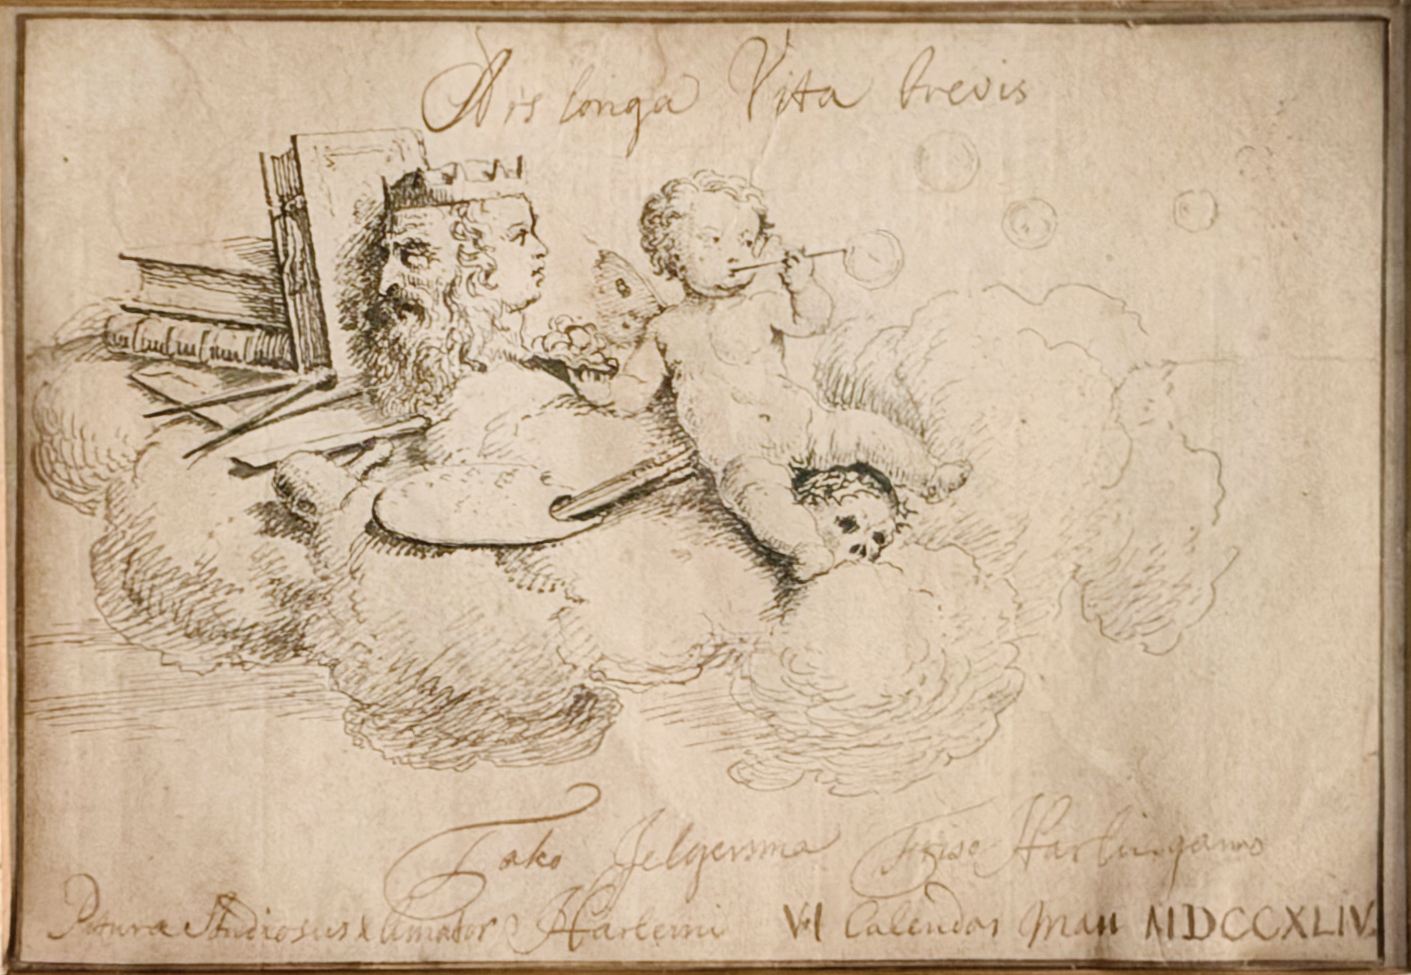 Ars longa Vita brevis
Tako Jelgersma Friso Harlinganus
Picturæ Studiosus & Amator Harlemi VII Calendas Maii MDCCXLIV.